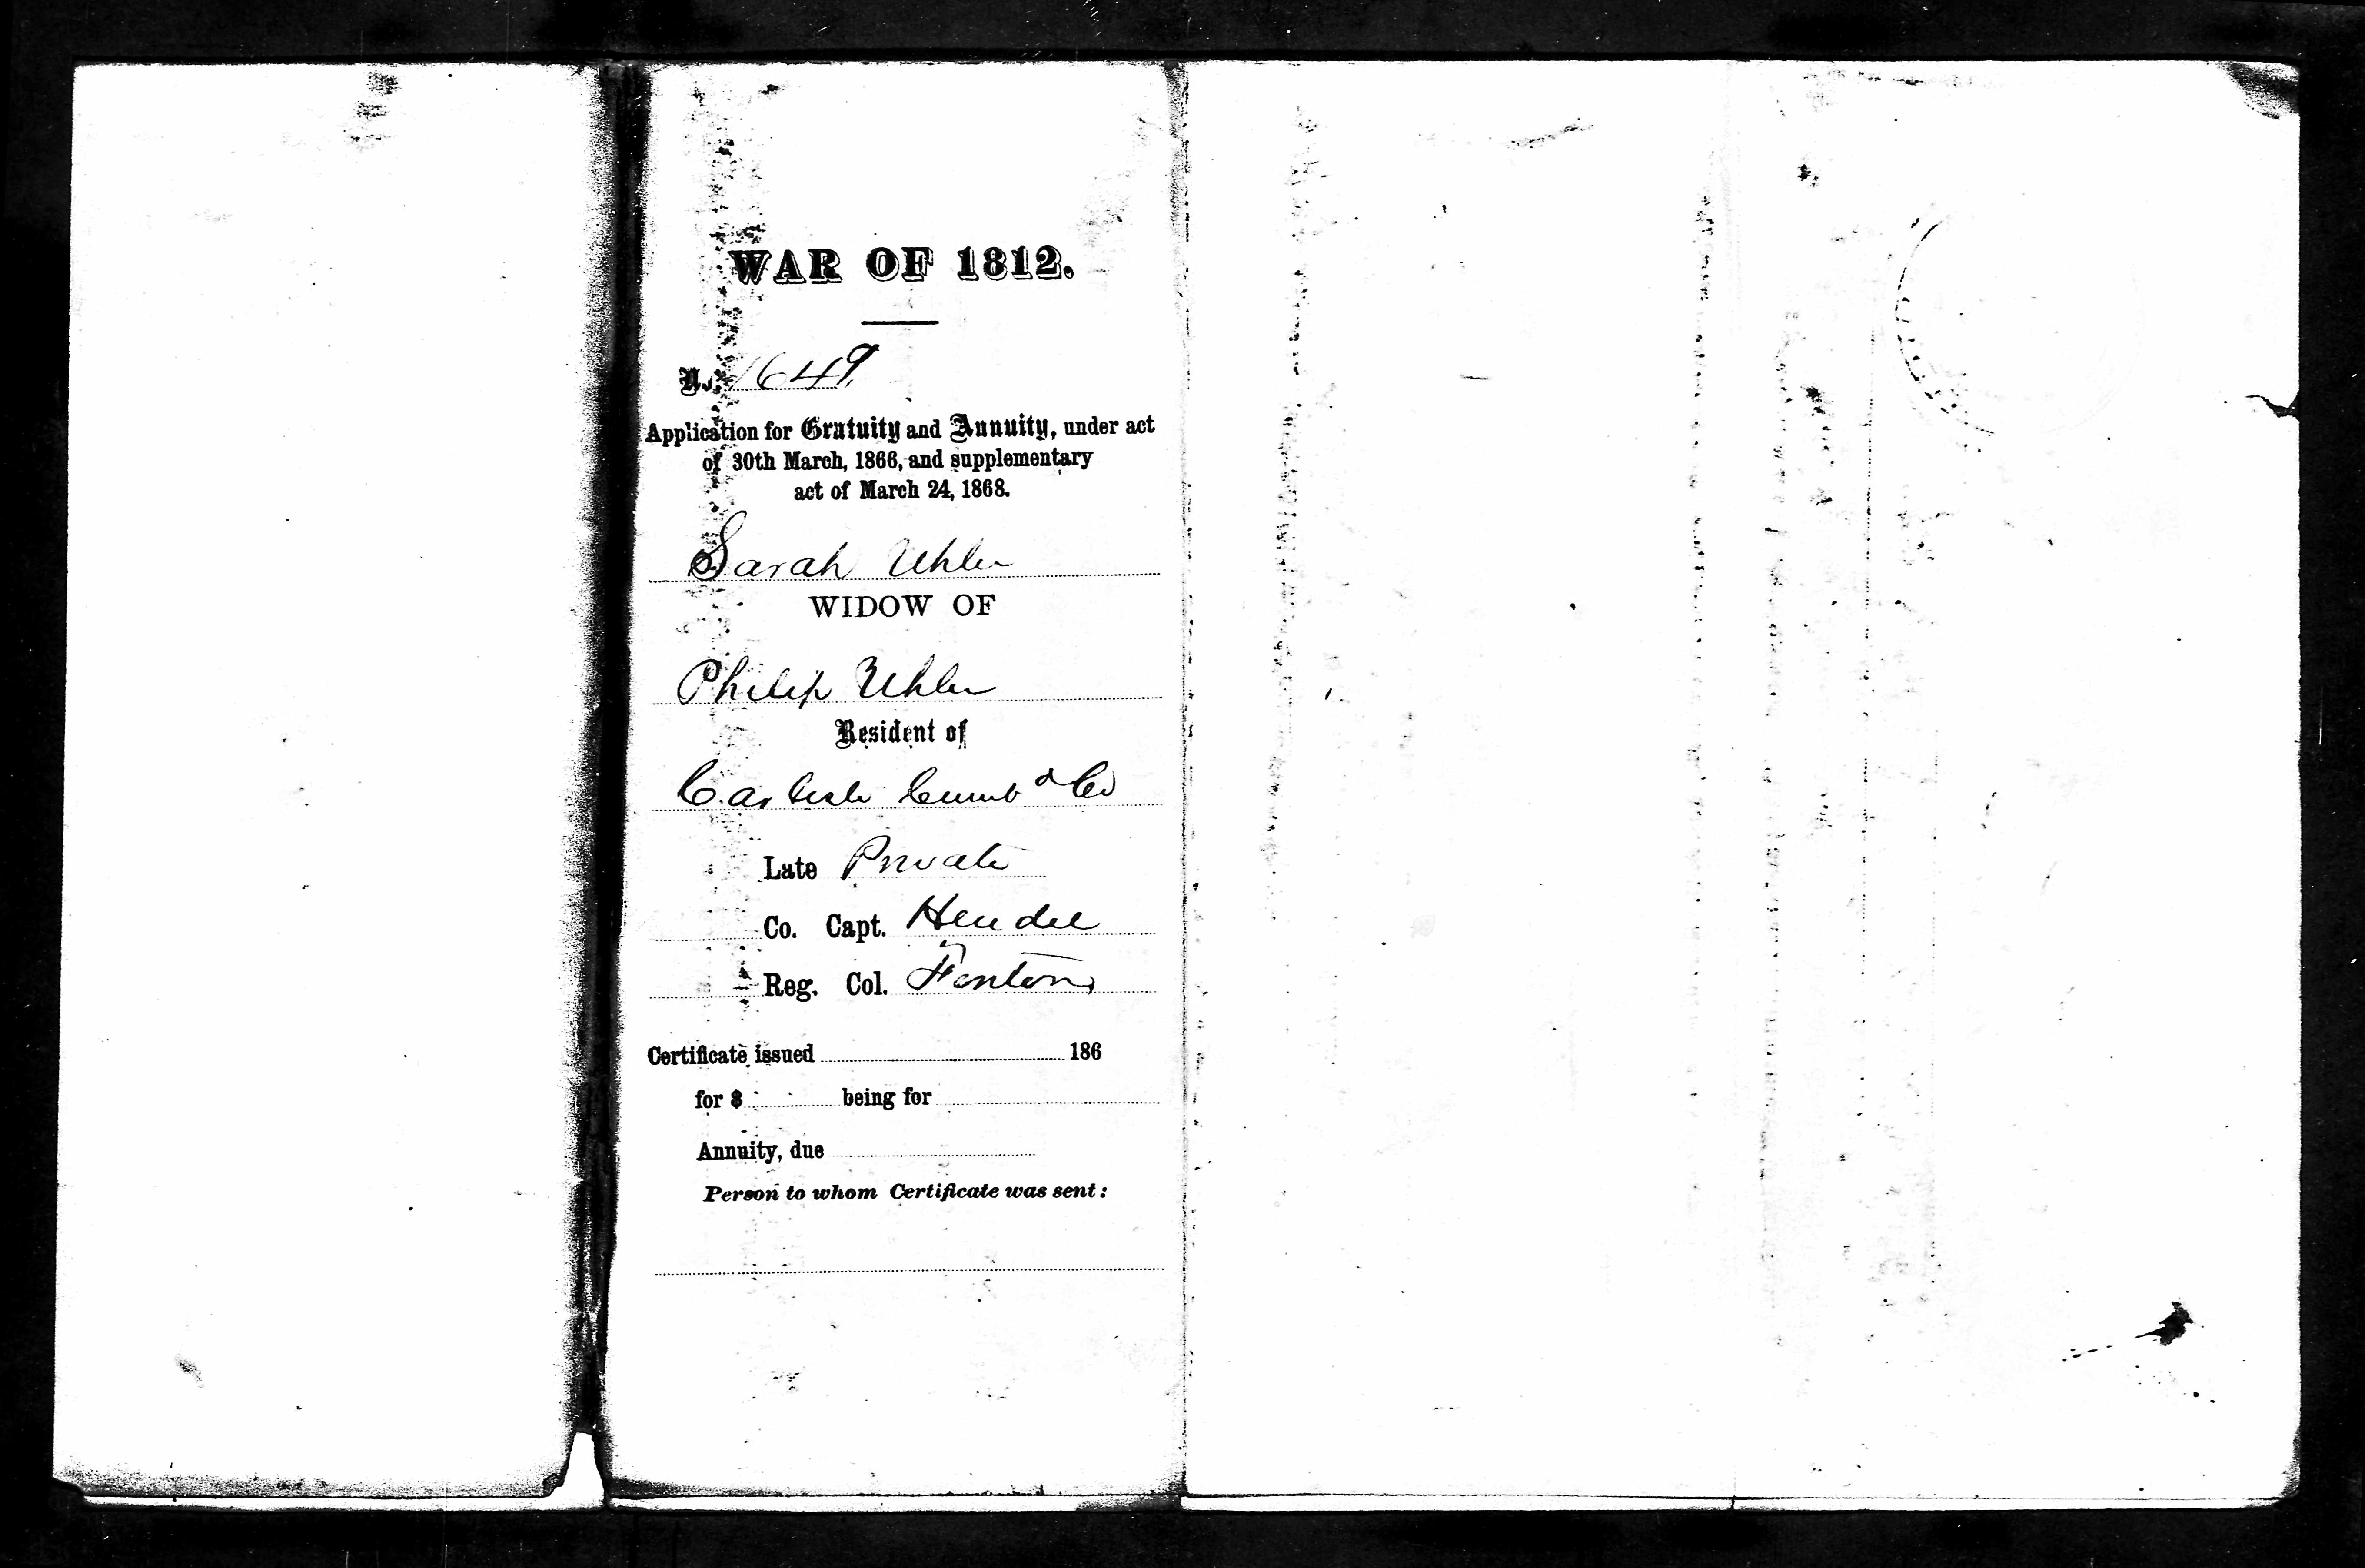 WAR OF 1812.
No. 1649
Application for Gratuity and Annuity, under act
of 30th March, 1866, and supplementary
act of March 24, 1868.
Sarah Uhler
WIDOW OF
Philip Uhler
Resident of
Carlisle Cumbd Co
Late Private
Co. Capt. Hendel
Reg. Col. Fenton
Certificate issued 186
for $ being for
Annuity, due
Person to whom Certificate was sent: